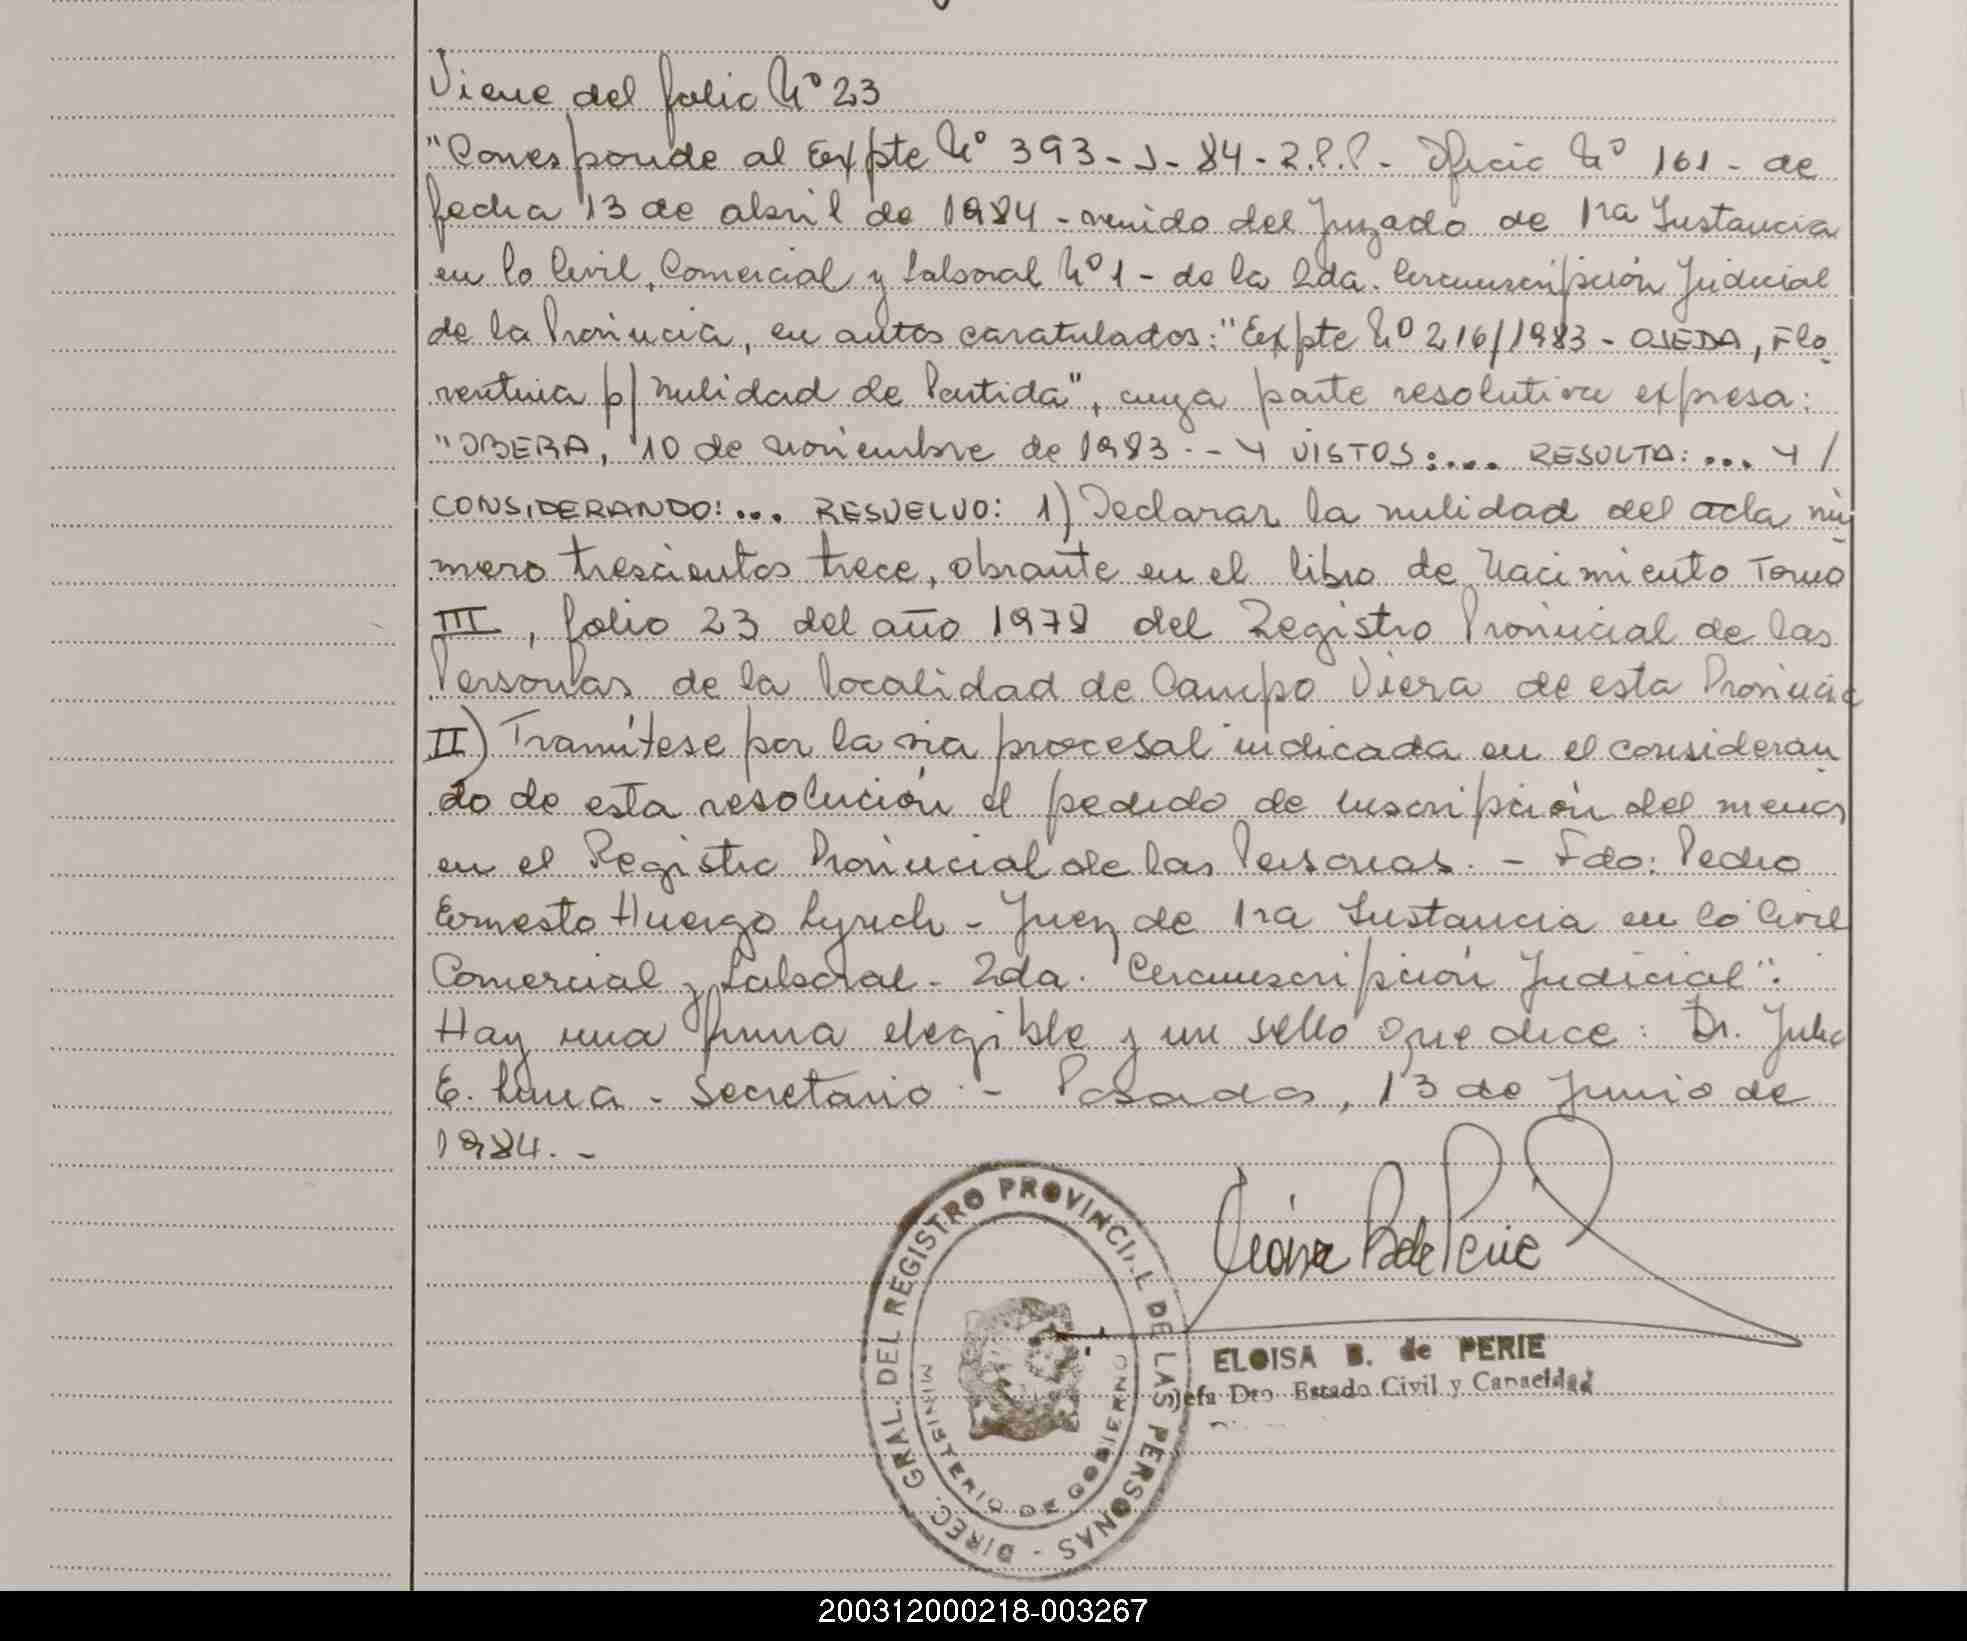 Viene del folio Nº 23
"Corresponde al Expte Nº 393-J-84-R.P.P.- Oficio Nº 161- de
fecha 13 de abril de 1984 - venido del Juzgado de 1ra Instancia
en lo Civil, Comercial y Laboral Nº 1 - de la 2da. Circunscripción Judicial
de la Provincia, en autos caratulados: "Expte Nº 216/1983 - OJEDA, Flo
rentina p/ nulidad de Partida", cuya parte resolutiva expresa:
"OBERA, 10 de noviembre de 1983.- Y VISTOS:... RESULTA: ... Y /
CONSIDERANDO: ... RESUELVO: 1) Declarar la nulidad del acta nú
mero trescientos trece, obrante en el libro de Nacimiento Tomo
III, folio 23 del año 1978 del Registro Provincial de las
Personas de la localidad de Campo Viera de esta Provincia
II) Tramítese por la via procesal indicada en el consideran
do de esta resolución el pedido de inscripción del menor
en el Registro Provincial de las Personas. - Fdo: Pedro
Ernesto Huergo Lynch - Juez de 1ra Instancia en lo Civil
Comercial y Laboral - 2da. Circunscripción Judicial".
Hay una firma elegible y un sello que dice: Dr. Julio
E. - Secretario - Posadas, 13 de Junio de
1984. -
DIREC. GRAL. DEL REGISTRO PROVINCI.L DE LAS PERSONAS -
MINISTERIO DE GOBIERNO
B de Perié
ELOISA B. de PERIE
Jefa Dto. Estado Civil y Capacidad
200312000218-003267